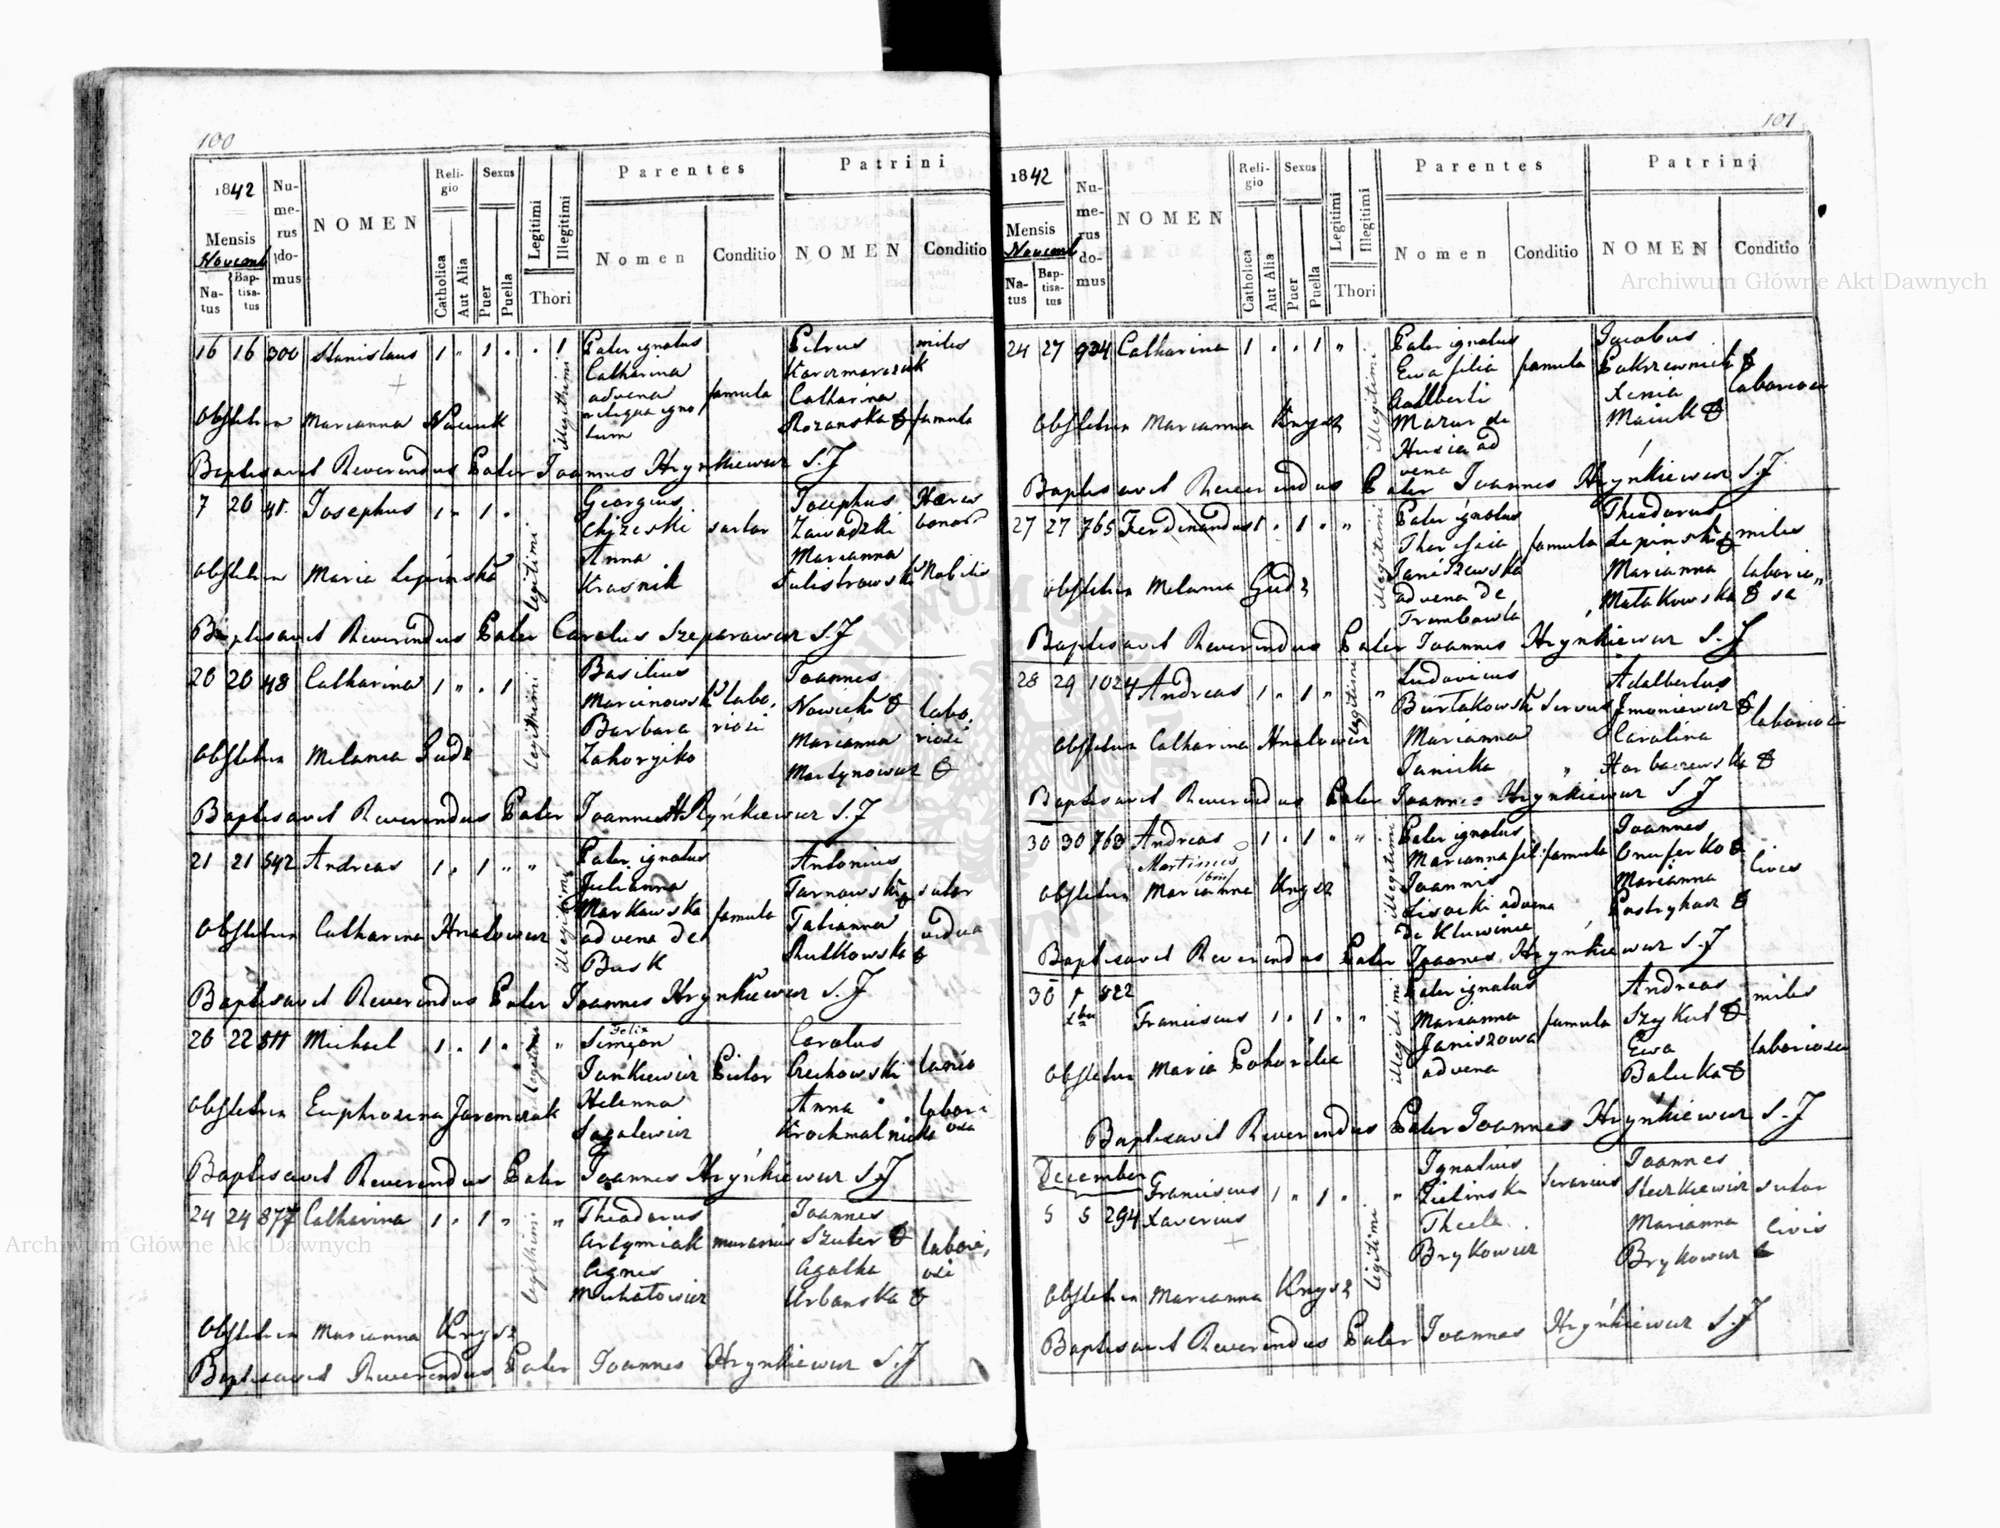 100
1842
Mensis
Novemb
Natus
Baptisatus
Numerus domus
NOMEN
Religio
Catholica
Aut Alia
Sexus
Puer
Puella
Legitimi
Illegitimi
Thori
Parentes
Nomen
Conditio
Patrini
NOMEN
Conditio
16 16 300 Stanislaus 1 " 1 . . 1 Pater ignotus Petrus miles
Catharina
advena famula Catharina
Rozanska famula
illegithimi
Obstetrix Marianna
Baptisavit Reverendus Pater Joannes Hrynkiewicz S.J
7 20 Josephus 1 " 1 . Georgius Josephus
sartor Zawadzki
Anna Marianna
Krasnik Nobilis
legitimi
Obstetrix Maria Lepinska
Baptisavit Reverendus Pater Carolus Szeparowicz S.J
20 20 48 Catharina 1 " . 1 Basilius Joannes
Marcinowski labo, Nowicki labo,
Barbara riosi Marianna riosi
Martynowicz
legithimi
Obstetrix Melania Gudz
Baptisavit Reverendus Pater Joannes Hrynkiewicz S.J
21 21 542 Andreas 1 . 1 " " Pater ignotus Antonius
Julianna Tarnowski sutor
Markowska famula Tatianna vidua
advena de Rutkowska
Busk
illegitimi
Obstetrix Catharina Hnatowicz
Baptisavit Reverendus Pater Joannes Hrynkiewicz S.J
20 22 511 Michael 1 . 1 . 1 " Felix
Simeon Carolus
Jankiewicz Pictor Czechowski lanio
Helenna Anna labori
Sagalewicz Krochmalnicka osa
legitimi
Obstetrix Euphrozina Jaremczak
Baptisavit Reverendus Pater Joannes Hrynkiewicz S.J
24 24 877 Catharina 1 . 1 " " Theodorus Joannes
Artymiak murarius Szuter labori,
Agnes Agatha osi
Michatowicz Urbanska
legithimi
Obstetrix Marianna Knysz
Baptisavit Reverendus Pater Joannes Hrynkiewicz S.J
101
1842
Mensis
Novemb
Natus
Baptisatus
Numerus domus
NOMEN
Religio
Catholica
Aut Alia
Sexus
Puer
Puella
Legitimi
Illegitimi
Thori
Parentes
Nomen
Conditio
Patrini
NOMEN
Conditio
24 27 934 Catharina 1 . . 1 " Pater ignotus Jacobus
Ewa filia famula
Adalberti Xenia laboriosi
Mazur de
Husia ad
vena
illegitimi
Obstetrix Marianna Knysz
Baptisavit Reverendus Pater Joannes Hrynkiewicz S.J
27 27 765 Ferdinandus 1 . 1 " " Pater ignotus Theodorus
Theressia famula Lepinski miles
Janiszewska Marianna laborio,,
advena de Matakowska sa
Trembowla
illegitimi
Obstetrix Melania Gudz
Baptisavit Reverendus Pater Joannes Hrynkiewicz S.J
28 29 1024 Andreas 1 . 1 " " Ludovicus Adalbertus
Burtakowski Servus laboriosi
Marianna Carolina
Janicka Horbaczewska
legitimi
Obstetrix Catharina Hnatowicz
Baptisavit Reverendus Pater Joannes Hrynkiewicz S J
30 30 760 Andreas 1 . 1 " " Pater ignotus Joannes
Marianna fil: famula Onuferko
Joannis Marianna cives
Lisocki advena Pastrykasz
de Kluwinie
illegitimi
Obstetrix Marianna Knysz
Baptisavit Reverendus Pater Joannes Hrynkiewicz S.J
30 1 822 Pater ignotus Andreas miles
Xbr
Franciscus 1 . 1 " " Marianna famula Szykut
Janiszowa Ewa laboriosa
advena Balicka
illegitimi
Obstetrix Maria
Baptisavit Reverendus Pater Joannes Hrynkiewicz S.J
December
5 5 294 Franciscus 1 " 1 . " Ignatius Joannes
Xaverius Zielinski Steczkiewicz sutor
Thecla Marianna civis
Brykowicz Brykowicz
legitimi
Obstetrix Marianna Knysz
Baptisavit Reverendus Pater Joannes Hrynkiewicz S.J
Archiwum Główne Akt Dawnych
Archiwum Główne Akt Dawnych
ARCHIWUM GŁÓWNE AKT DAWNYCH